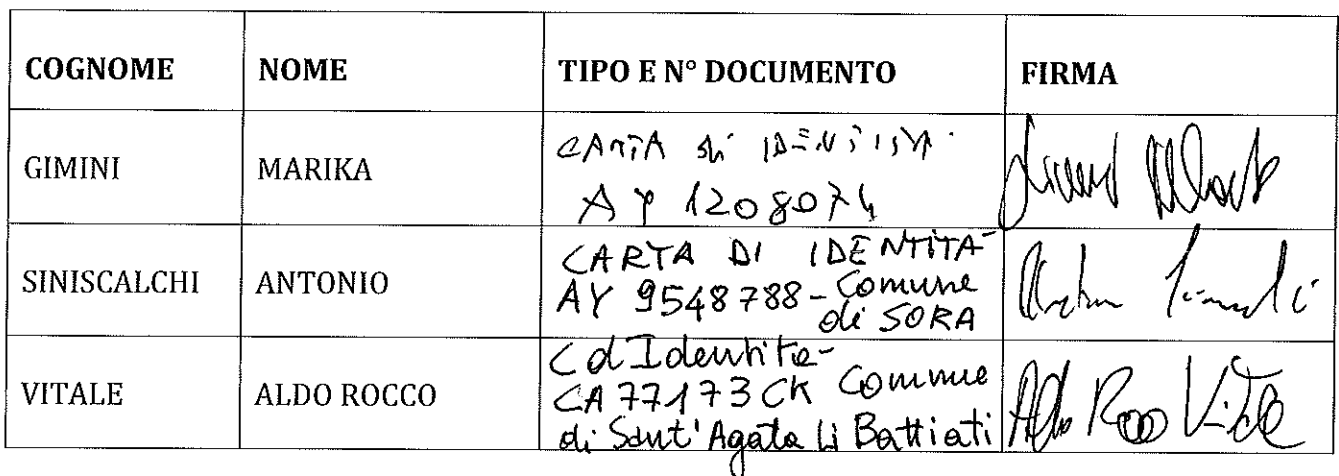 COGNOME NOME TIPO E N° DOCUMENTO FIRMA
GIMINI MARIKA CARTA di IDENTITA'
AY 1208074
SINISCALCHI ANTONIO CARTA DI IDENTITA
AY 9548788 - Comune
di SORA
VITALE ALDO ROCCO C d Identita
CA 77173 CK Comune
di Sant'Agata li Battiati Aldo Rocco Vitale